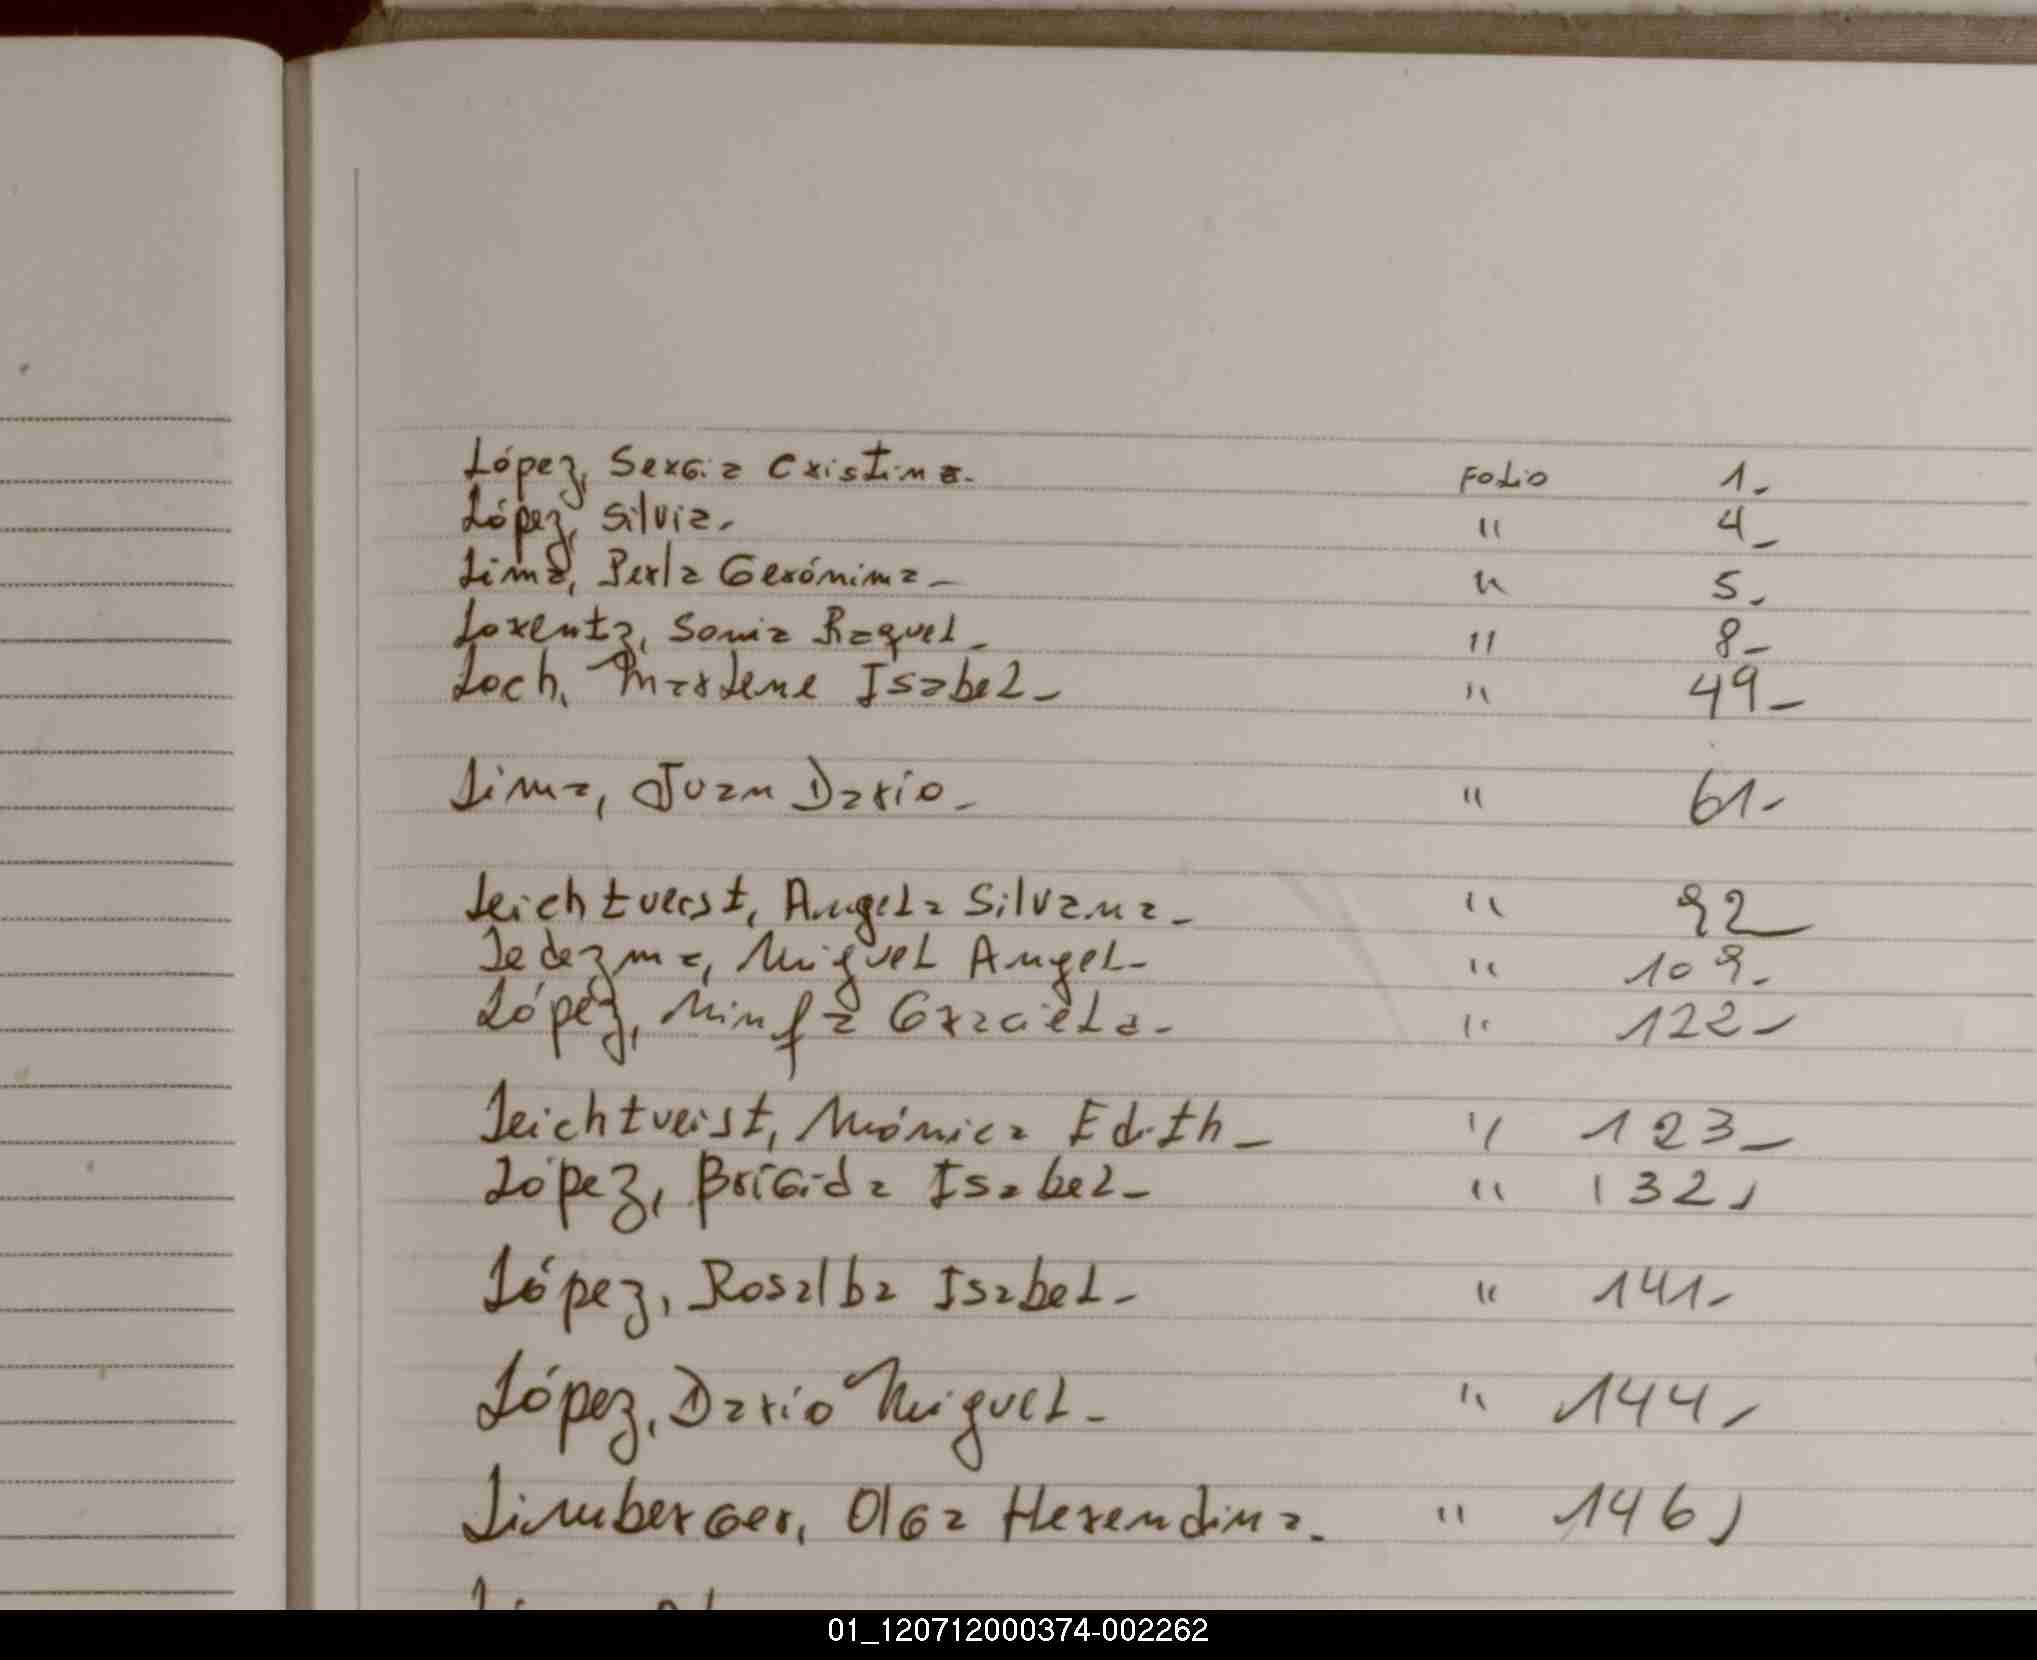 López, Sergia Cristina. Folio 1_
López, Silvia. " 4_
Lima, Perla Gerónima_ " 5_
Lorentz, Sonia Raquel_ " 8_
Loch, Marlene Isabel_ " 49_
Lima, Juan Darío_ " 61_
Leichtverst, Angela Silvana_ " 92_
Ledezma, Miguel Angel_ " 109_
López, Ninfa Graciela_ " 122_
Leichtveist, Mónica Edith_ " 123_
López, Brígida Isabel_ " 132_
López, Rosalba Isabel_ " 141_
López, Darío Miguel_ " 144_
Limberger, Olga Herendina_ " 146_
01_120712000374-002262